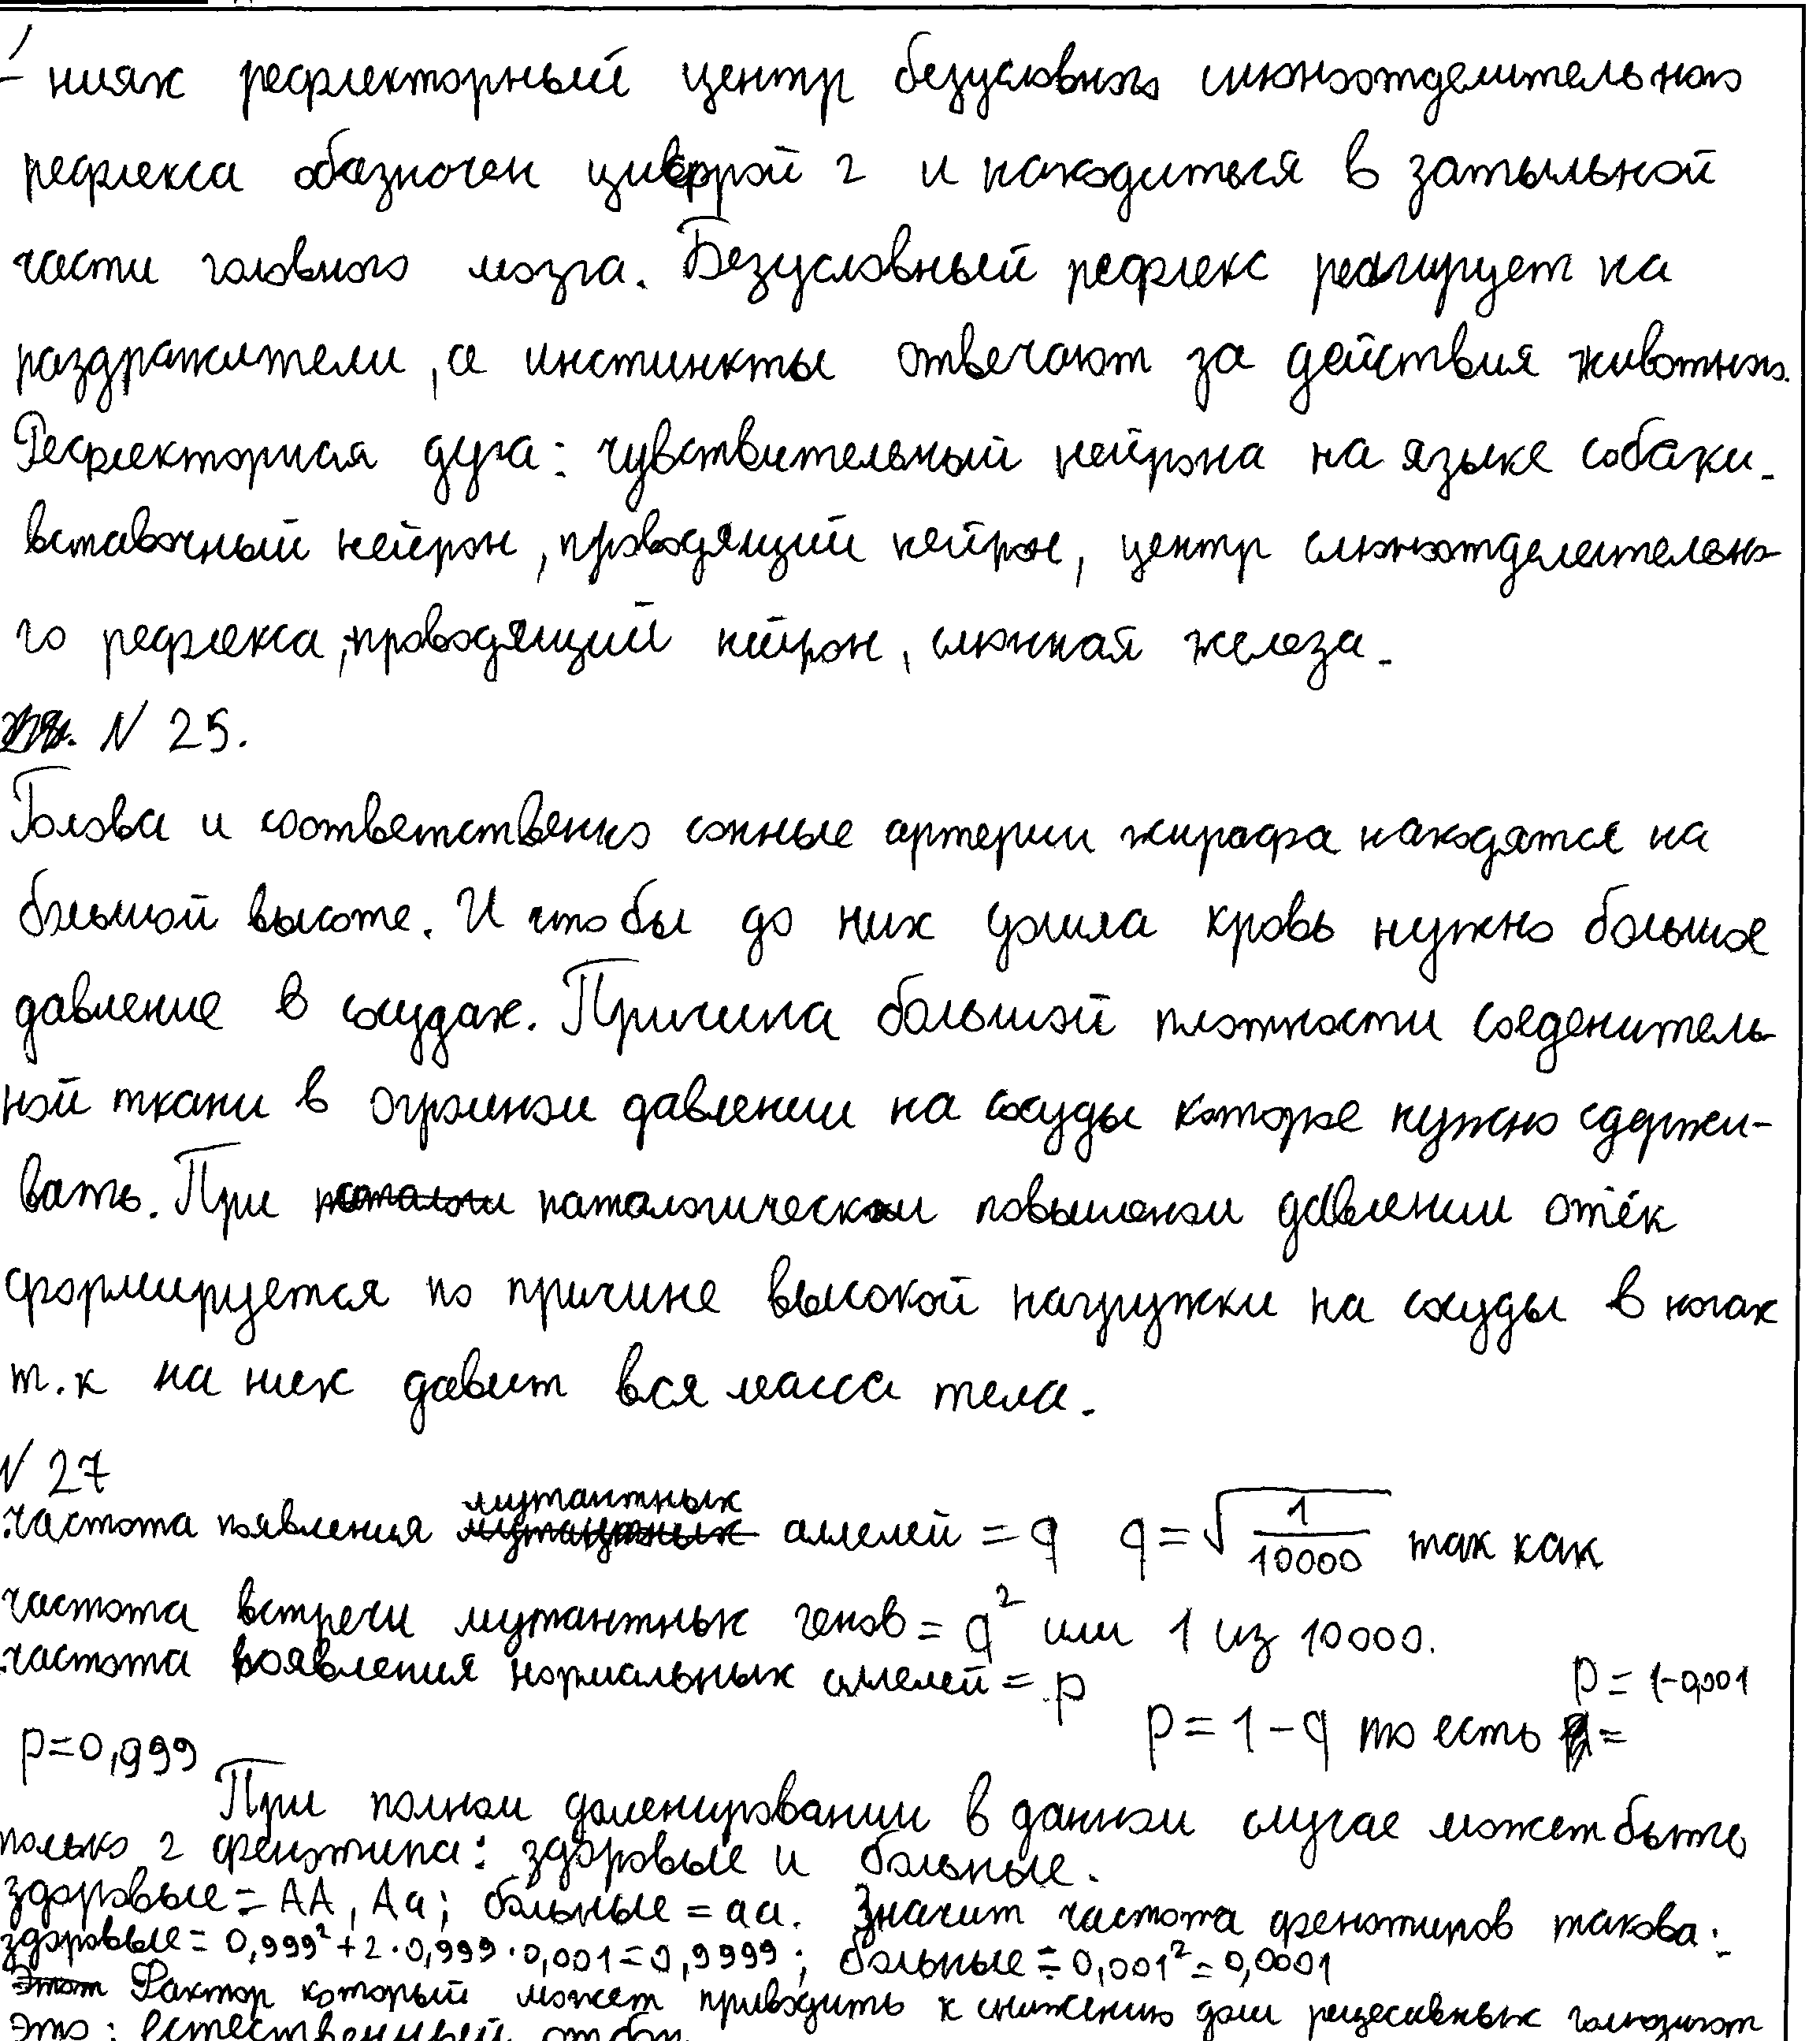 - ниях рефлекторный центр безусловного слюноотделительного
рефлекса обазночен цифрой 2 и находиться в затыльной
части головного мозга. Безусловный рефлекс реагирует на
раздражители, а инстинкты отвечают за действия животных.
Рефлекторная дуга: чувствительный нейрона на языке собаки.
вставочный нейрон, проводящий нейрон, центр слюноотделительно-
го рефлекса, проводящий нейрон, слюнная железа.
N 25.
Голова и соответственно сонные артерии жирафа находятся на
большой высоте. И что бы до них дошла кровь нужно большое
давление в сосудах. Причина большой плотности соеденитель-
ной ткани в огромном давлении на сосуды которое нужно сдержи-
вать. При патологическом повышеном давлении отёк
сформируется по причине высокой нагрузки на сосуды в ногах
т.к на них давит вся масса тела.
N 27
частота появления мутантных аллелей = q q = √1/10000 так как
частота встречи мутантных генов = q² или 1 из 10000.
частота появления нормальных аллелей = p
p = 1 - q то есть p = 1-0,001
p=0,999
При полном доменировании в данном случае может быть
только 2 фенотипа: здоровые и больные.
здоровые = AA, Aa; больные = aa. Значит частота фенотипов такова:
здоровые = 0,999² + 2·0,999·0,001 = 0,9999; больные = 0,001² = 0,0001
Фактор который может приводить к снижению доли рецесивных гомозигот
это: естественный отбор